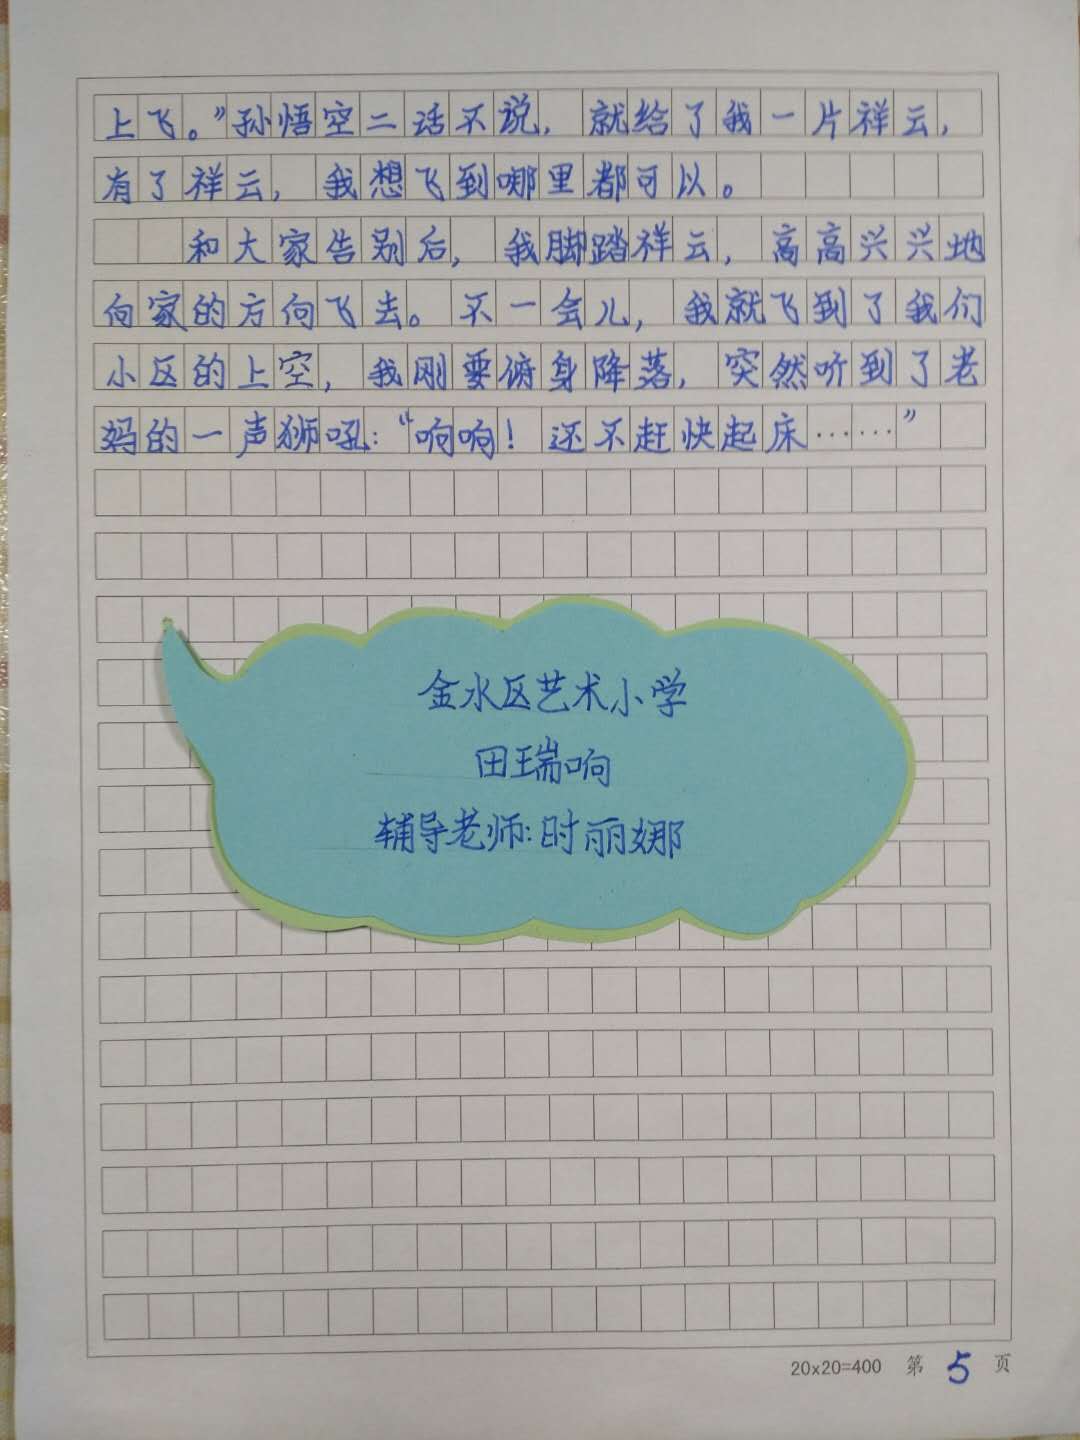 上飞。”孙悟空二话不说，就给了我一片祥云，
有了祥云，我想飞到哪里都可以。
和大家告别后，我脚踏祥云，高高兴兴地
向家的方向飞去。不一会儿，我就飞到了我们
小区的上空，我刚要俯身降落，突然听到了老
妈的一声狮吼：“响响！还不赶快起床……”
金水区艺术小学
田瑞响
辅导老师：时丽娜
20×20=400 第 5 页